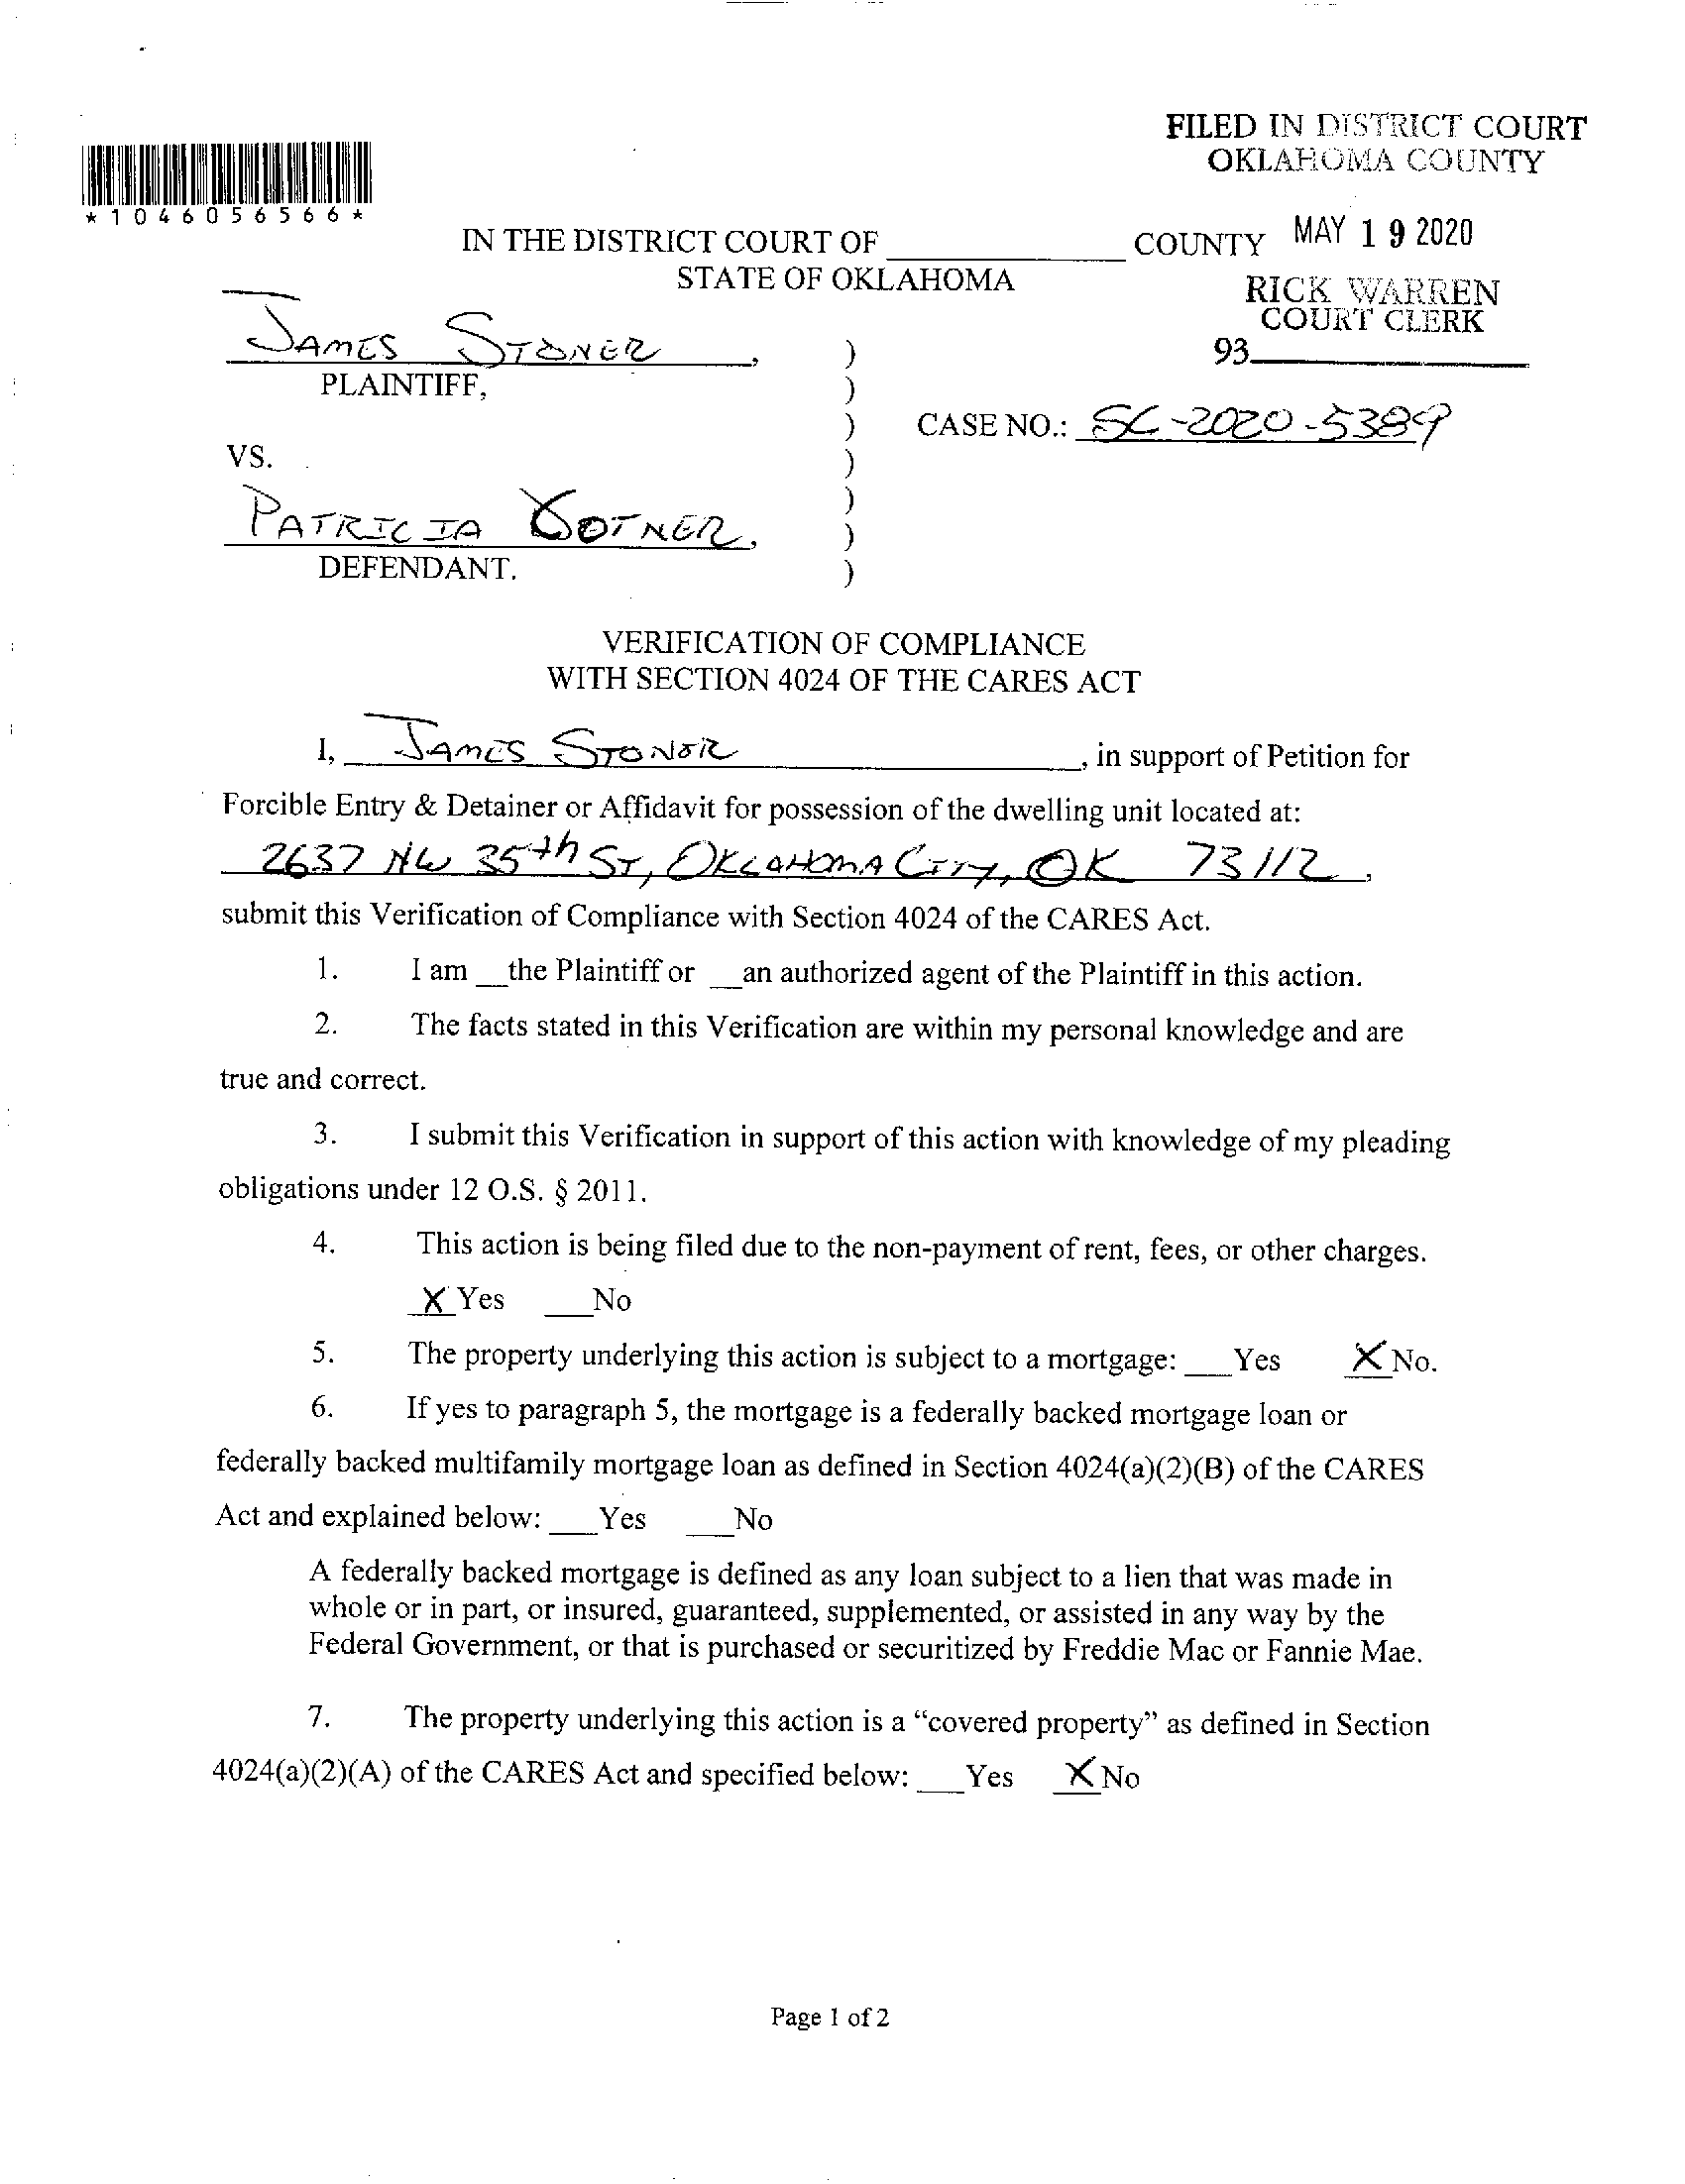 FILED IN DISTRICT COURT
OKLAHOMA COUNTY
*1046056566*
MAY 19 2020
IN THE DISTRICT COURT OF ____________ COUNTY
STATE OF OKLAHOMA
RICK WARREN
COURT CLERK
93____________
JAMES STONER,
PLAINTIFF,
)
)
)
)
)
)
)
CASE NO.: SC-2020-5389
VS.
PATRICIA ,
DEFENDANT.
VERIFICATION OF COMPLIANCE
WITH SECTION 4024 OF THE CARES ACT
I, JAMES STONER, in support of Petition for
Forcible Entry & Detainer or Affidavit for possession of the dwelling unit located at:
2637 NW 35th ST, OKLAHOMA CITY, OK 73112,
submit this Verification of Compliance with Section 4024 of the CARES Act.
1. I am __the Plaintiff or __an authorized agent of the Plaintiff in this action.
2. The facts stated in this Verification are within my personal knowledge and are
true and correct.
3. I submit this Verification in support of this action with knowledge of my pleading
obligations under 12 O.S. § 2011.
4. This action is being filed due to the non-payment of rent, fees, or other charges.
X Yes ___No
5. The property underlying this action is subject to a mortgage: ___Yes X No.
6. If yes to paragraph 5, the mortgage is a federally backed mortgage loan or
federally backed multifamily mortgage loan as defined in Section 4024(a)(2)(B) of the CARES
Act and explained below: ___Yes ___No
A federally backed mortgage is defined as any loan subject to a lien that was made in
whole or in part, or insured, guaranteed, supplemented, or assisted in any way by the
Federal Government, or that is purchased or securitized by Freddie Mac or Fannie Mae.
7. The property underlying this action is a “covered property” as defined in Section
4024(a)(2)(A) of the CARES Act and specified below: ___Yes X No
Page 1 of 2